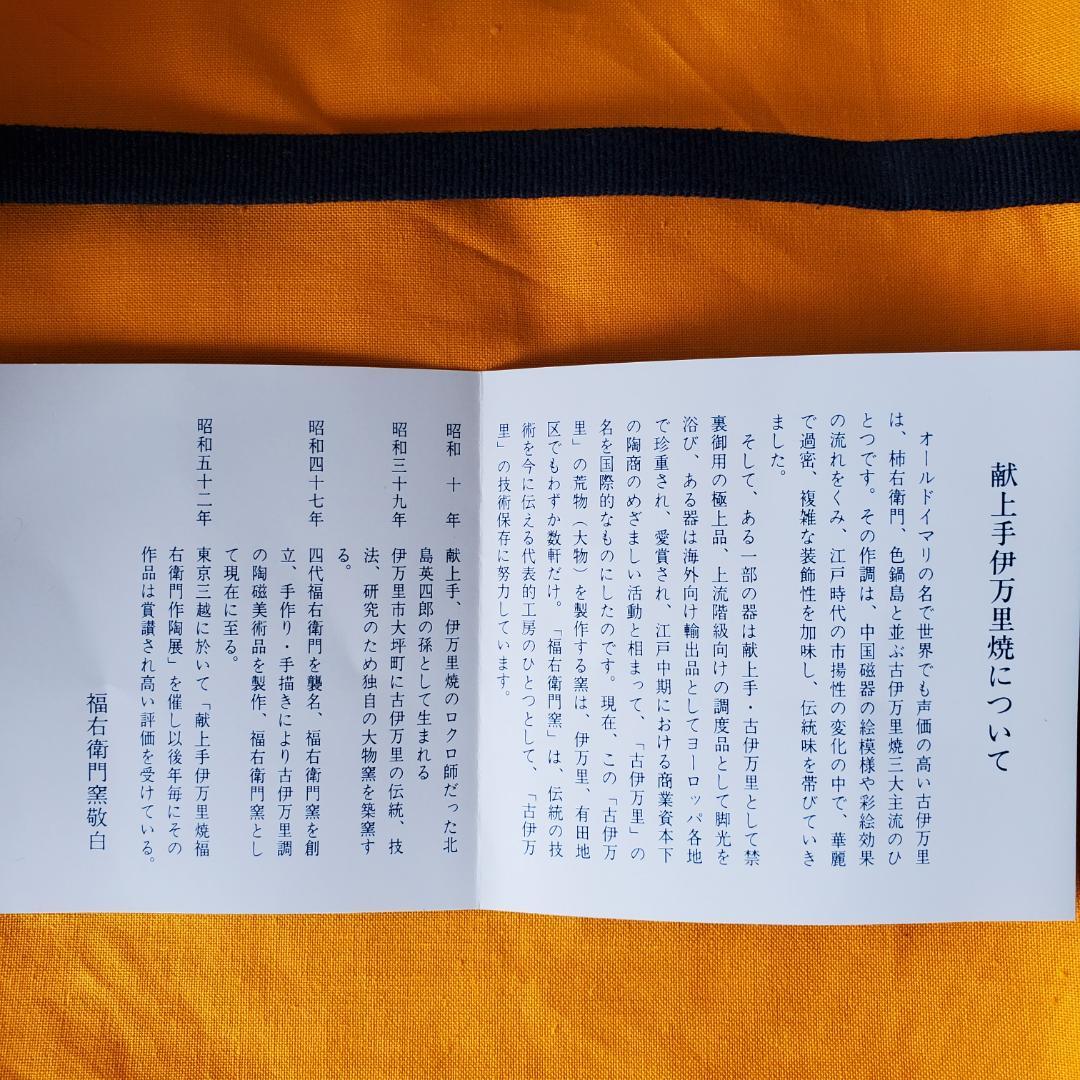 献上手伊万里焼について
オールドイマリの名で世界でも声価の高い古伊万里
は、柿右衛門、色鍋島と並ぶ古伊万里焼三大主流のひ
とつです。その作調は、中国磁器の絵模様や彩絵効果
の流れをくみ、江戸時代の市揚性の変化の中で、華麗
で過密、複雑な装飾性を加味し、伝統味を帯びていき
ました。
そして、ある一部の器は献上手・古伊万里として禁
裏御用の極上品、上流階級向けの調度品として脚光を
浴び、ある器は海外向け輸出品としてヨーロッパ各地
で珍重され、愛賞され、江戸中期における商業資本下
の陶商のめざましい活動と相まって、「古伊万里」の
名を国際的なものにしたのです。現在、この「古伊万
里」の荒物（大物）を製作する窯は、伊万里、有田地
区でもわずか数軒だけ。「福右衛門窯」は、伝統の技
術を今に伝える代表的工房のひとつとして、「古伊万
里」の技術保存に努力しています。
昭和十年 献上手、伊万里焼のロクロ師だった北
島英四郎の孫として生まれる
昭和三十九年 伊万里市大坪町に古伊万里の伝統、技
法、研究のため独自の大物窯を築窯す
る。
昭和四十七年 四代福右衛門を襲名、福右衛門窯を創
立、手作り・手描きにより古伊万里調
の陶磁美術品を製作、福右衛門窯とし
て現在に至る。
昭和五十二年 東京三越に於いて「献上手伊万里焼福
右衛門作陶展」を催し以後年毎にその
作品は賞讃され高い評価を受けている。
福右衛門窯敬白